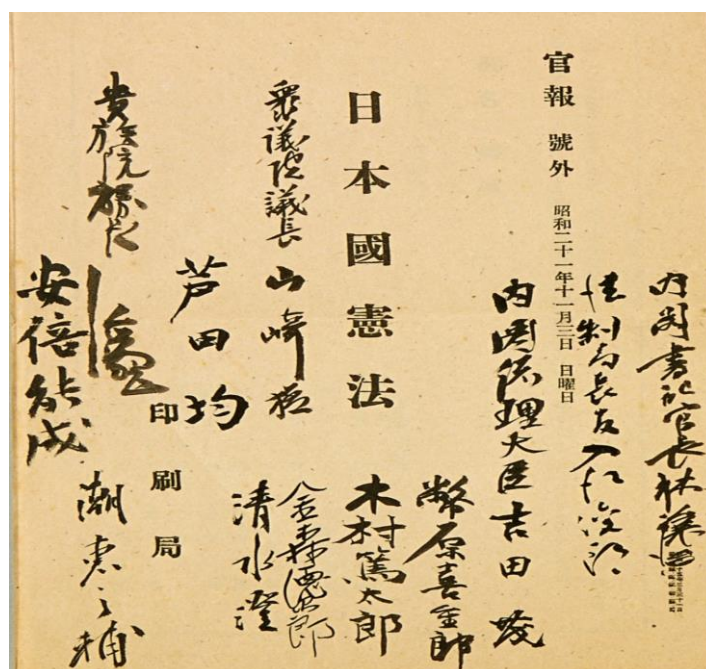 内閣書記官長林譲治
法制局長官入江俊郎
官報 號外 昭和二十一年十一月三日 日曜日
内閣総理大臣吉田茂
幣原喜重郎
日本國憲法
木村篤太郎
衆議院議長山崎猛
金森徳次郎
清水澄
芦田均
印刷局
貴族院議長
潮恵之輔
安倍能成